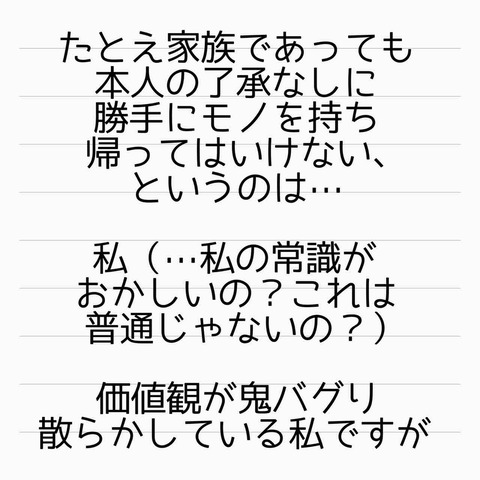 たとえ家族であっても
本人の了承なしに
勝手にモノを持ち
帰ってはいけない、
というのは…
私（…私の常識が
おかしいの？これは
普通じゃないの？）
価値観が鬼バグり
散らかしている私ですが